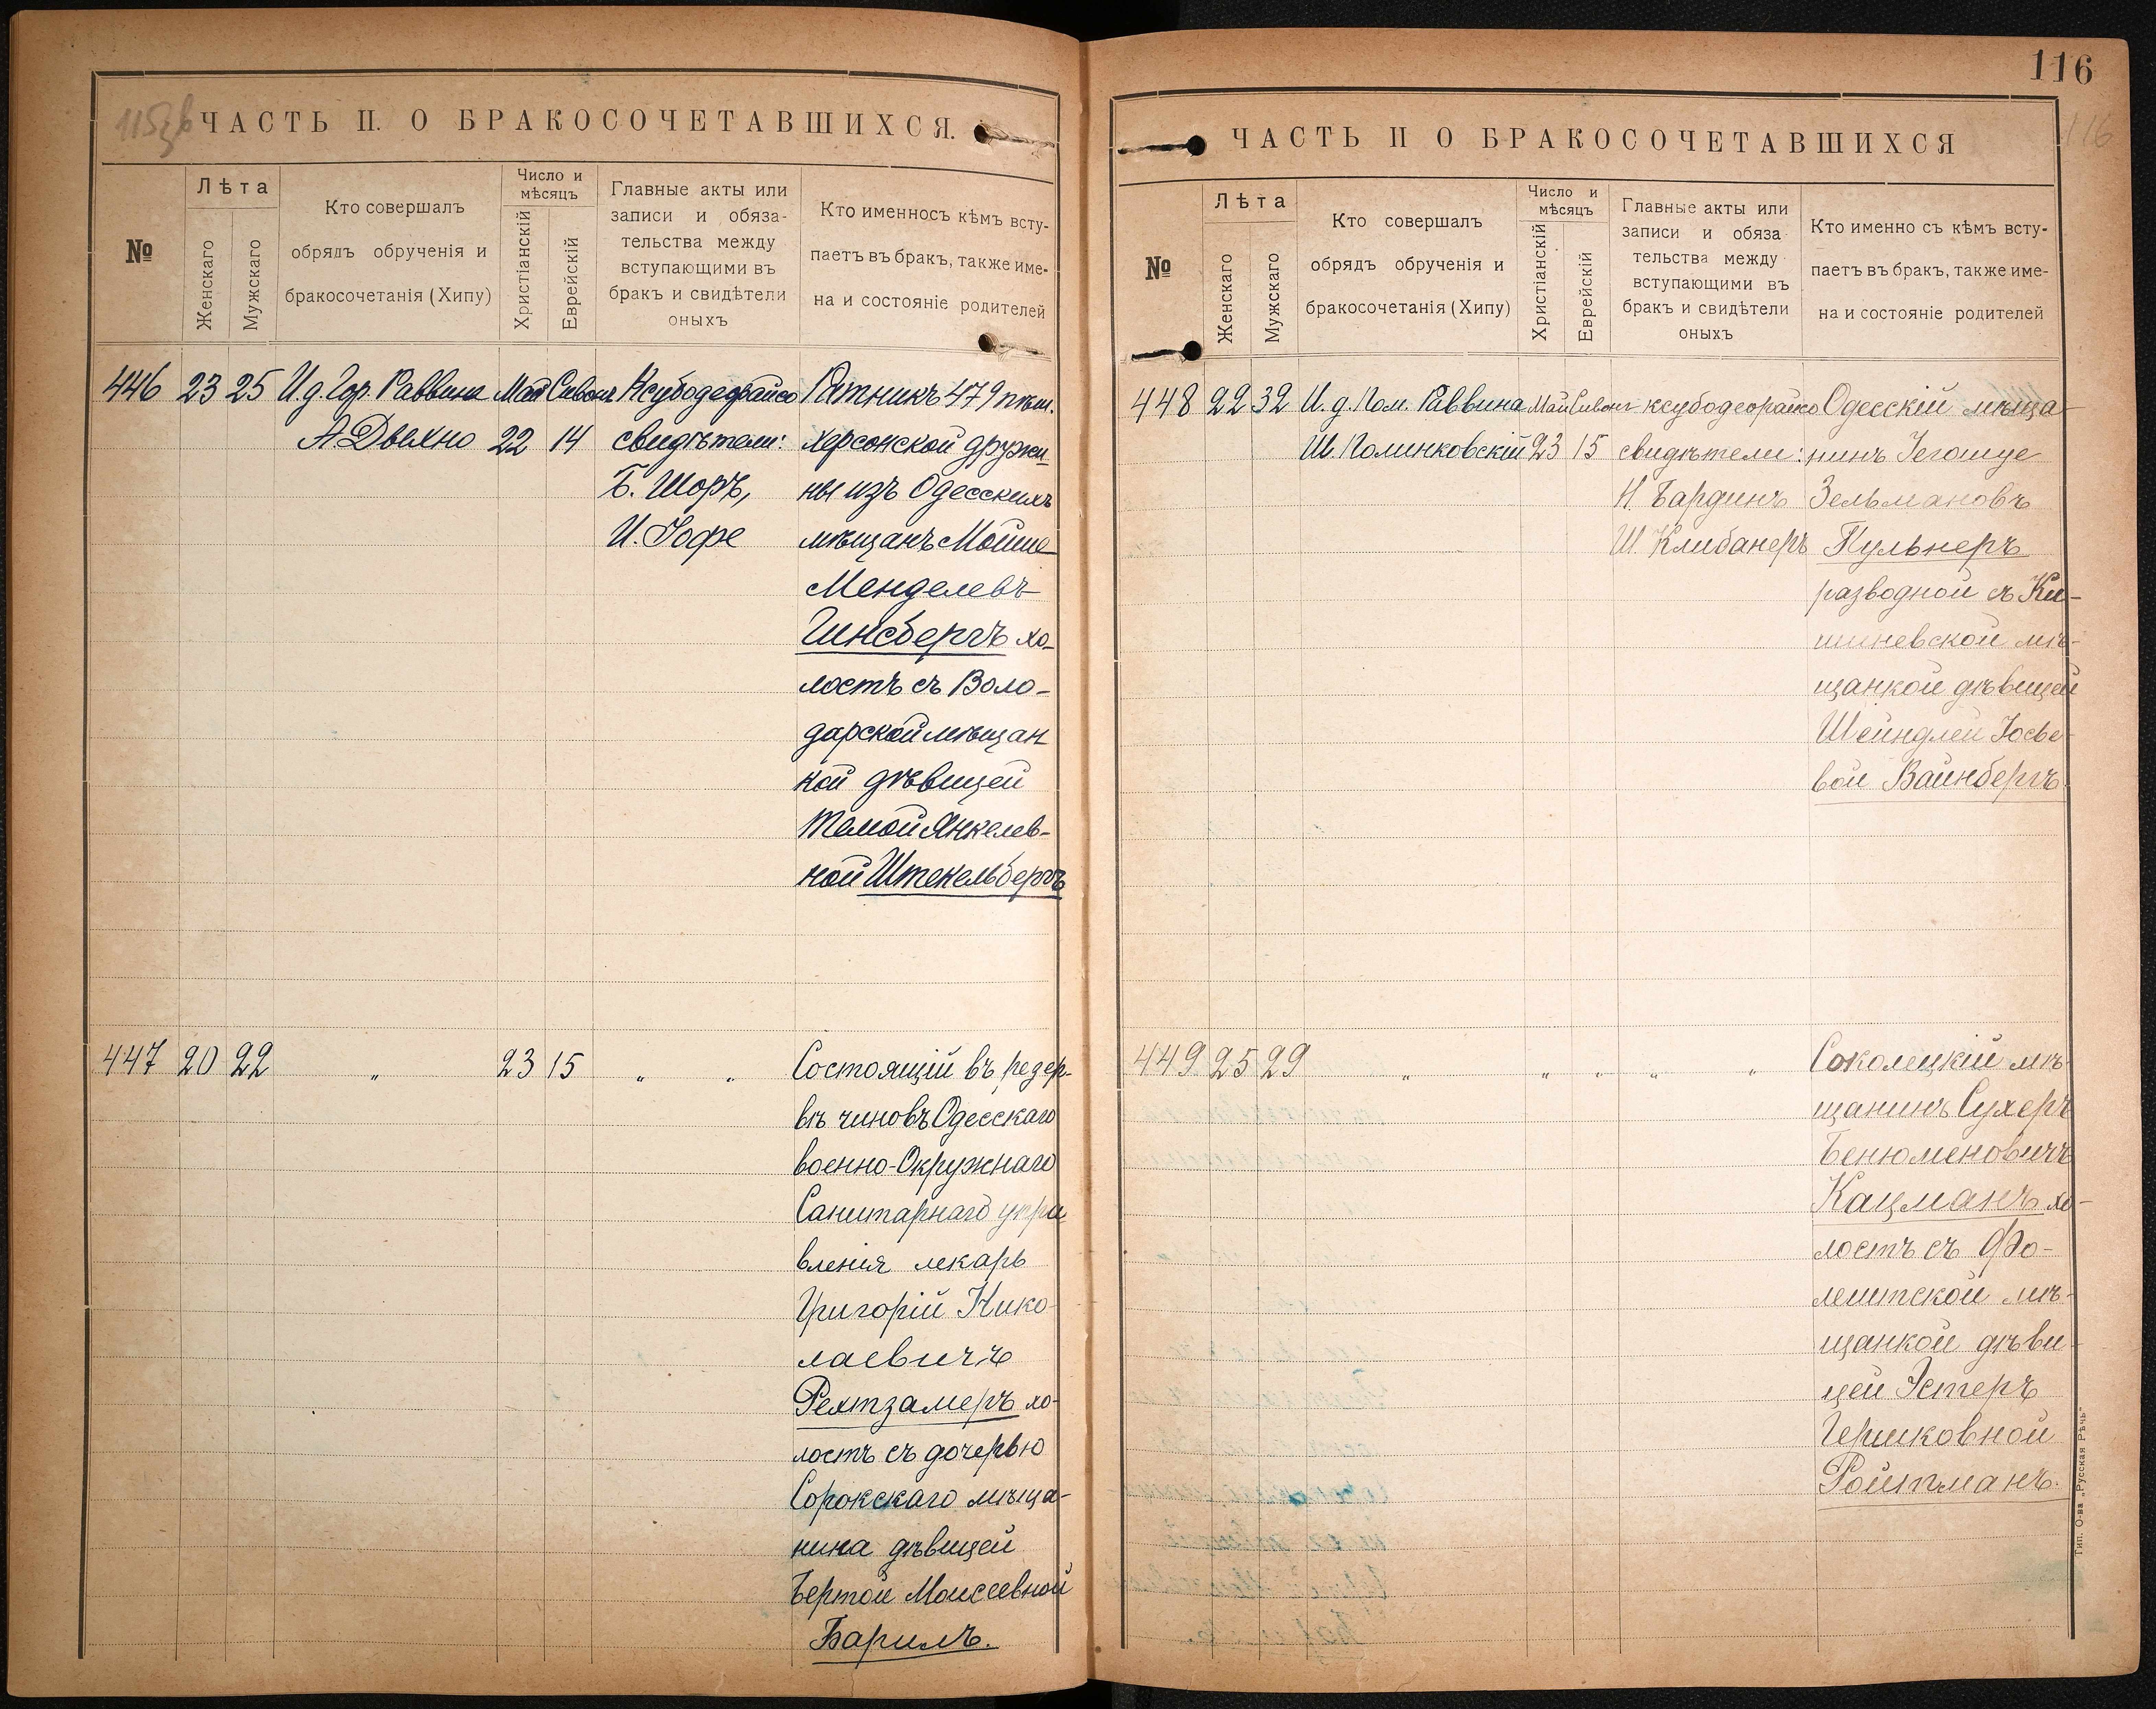 115 зв
ЧАСТЬ II. О БРАКОСОЧЕТАВШИХСЯ.
№
Лѣта
Женскаго
Мужскаго
Кто совершалъ
обрядъ обрученія и
бракосочетанія (Хипу)
Число и
мѣсяцъ
Христіанскій
Еврейскій
Главные акты или
записи и обяза-
тельства между
вступающими въ
бракъ и свидѣтели
оныхъ
Кто именносъ кѣмъ всту-
паетъ въ бракъ, также име-
на и состояніе родителей
446 23 25 И.д. Гор. Раввина Май Сивонъ Ксубодеорайсо Ратникъ 479 пѣш.
А. Дыхно 22 14 свидѣтели: херсонской дружи-
Б. Шоръ, ны изъ Одесскихъ
И. Іофе мѣщанъ Мойше
Менделевъ
Гинсбергъ хо-
лостъ съ Воло-
дарской мѣщан
кой дѣвицей
Темой Янкелев-
ной Штекельбергъ
447 20 22 „ 23 15 „ „ Состоящій въ резер-
вѣ чиновъ Одесскаго
военно-Окружнаго
Санитарнаго упра
вленія лекарь
Григорій Нико-
лаевичъ
Рехтзамеръ хо-
лостъ съ дочерью
Сорокскаго мѣща-
нина дѣвицей
Бертой Моисеевной
Барилъ.
116
116
ЧАСТЬ II О БРАКОСОЧЕТАВШИХСЯ
№
Лѣта
Женскаго
Мужскаго
Кто совершалъ
обрядъ обрученія и
бракосочетанія (Хипу)
Число и
мѣсяцъ
Христіанскій
Еврейскій
Главные акты или
записи и обяза
тельства между
вступающими въ
бракъ и свидѣтели
оныхъ
Кто именно съ кѣмъ всту-
паетъ въ бракъ, также име-
на и состояніе родителей
448 22 32 И. д. Пом. Раввина Май Сивонъ ксубодеорайсо Одесскій мѣща-
Ш. Полинковскій 23 15 свидѣтели: нинъ Іегошуе
Н. Бардинъ Зельмановъ
Ш. Клибанеръ Пульнеръ
разводной съ Ки-
шиневской мѣ-
щанкой дѣвицей
Шейндлей Іосье-
вой Вайнбергъ
449 25 29 „ „ „ „ „ Соколецкій мѣ-
щанинъ Сухеръ
Бенюменовичъ
Кацманъ хо-
лостъ съ Фо-
лештской мѣ-
щанкой дѣви-
цей Эстеръ
Гершковной
Ройтманъ.
Тип. О-ва „Русская Рѣчь"